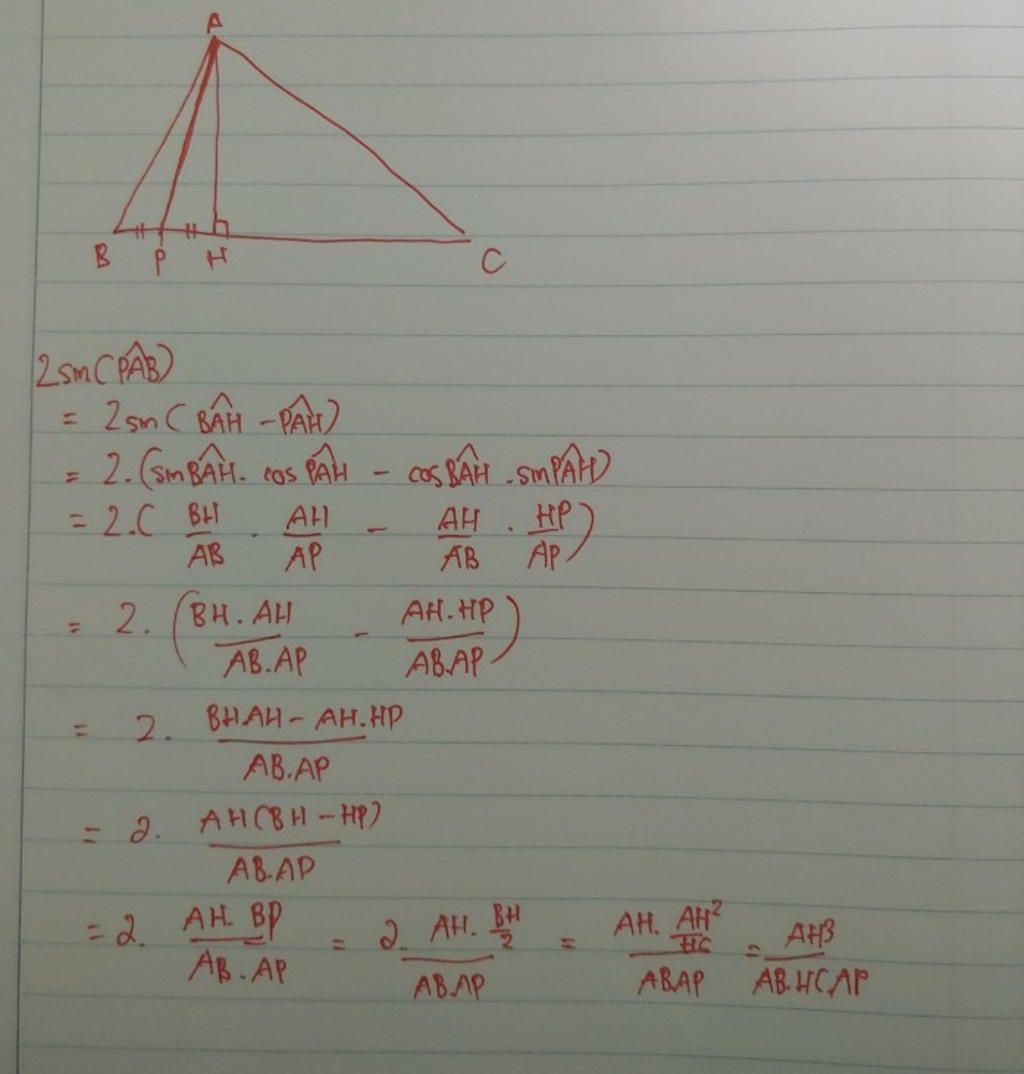 A
B P H C
2sin(PÂB)
= 2sin(BÂH - PÂH)
= 2.(sinBÂH. cosPÂH - cosBÂH.sinPÂH)
= 2.( BH/AB . AH/AP - AH/AB . HP/AP )
= 2. ( BH.AH/AB.AP - AH.HP/AB.AP )
= 2. BH.AH - AH.HP/AB.AP
= 2. AH(BH - HP)/AB.AP
= 2. AH.BP/AB.AP = 2. AH. BH/2 / AB.AP = AH. AH²/HC / AB.AP = AH³/AB.HC.AP